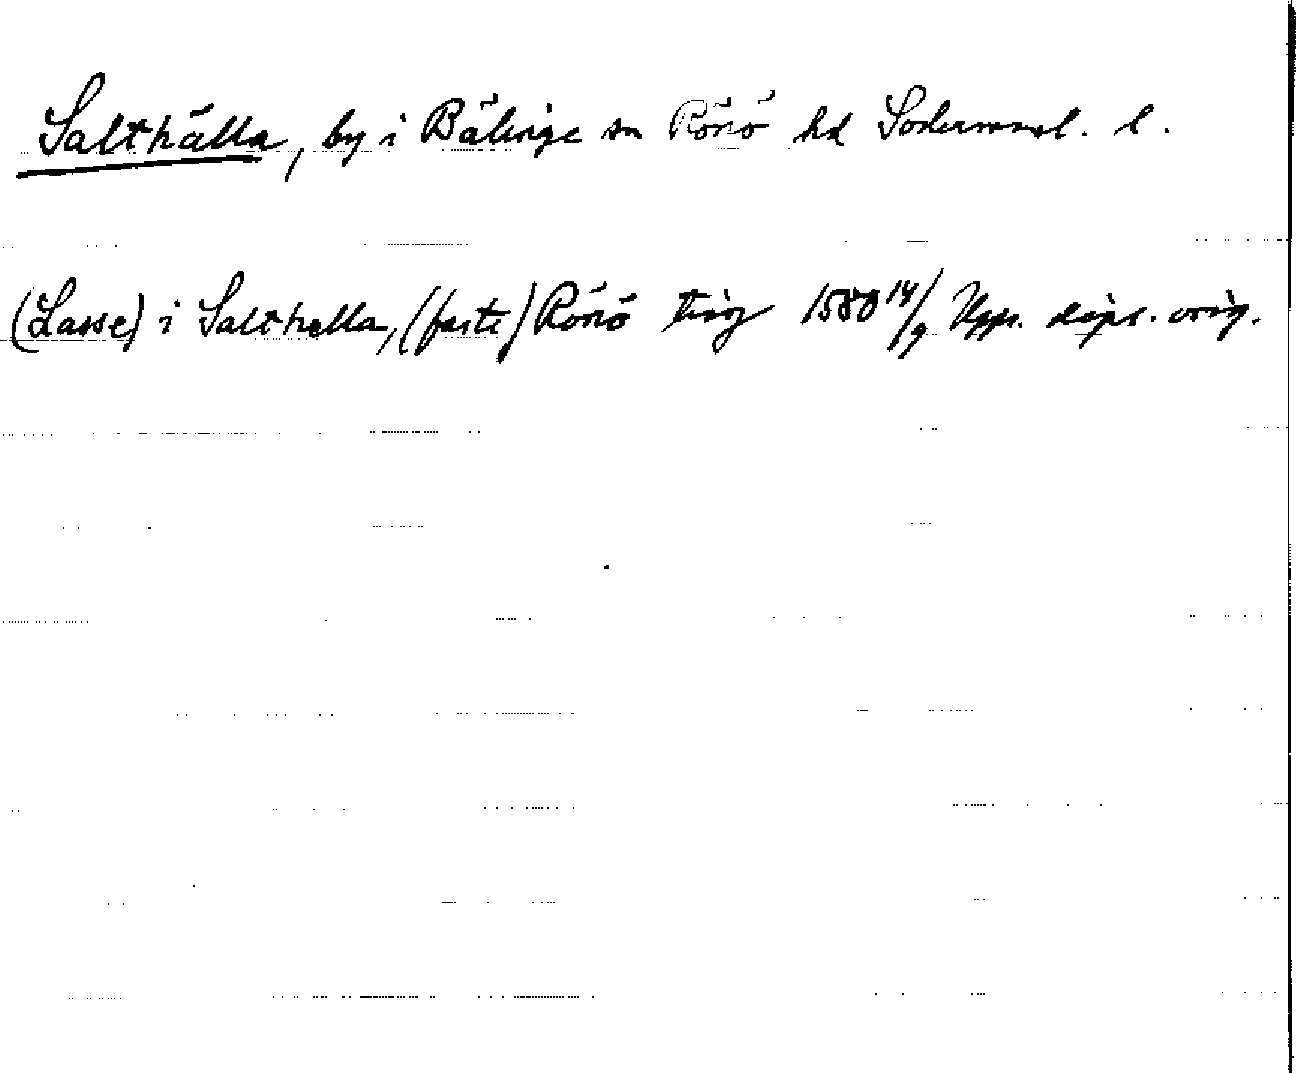 Salthälla, by i Bälinge sn Rönö hd Södermanl. l.
(Lasse) i Salthella, (faste) Rönö ting 1580 14/9 Upps. dipl. orig.